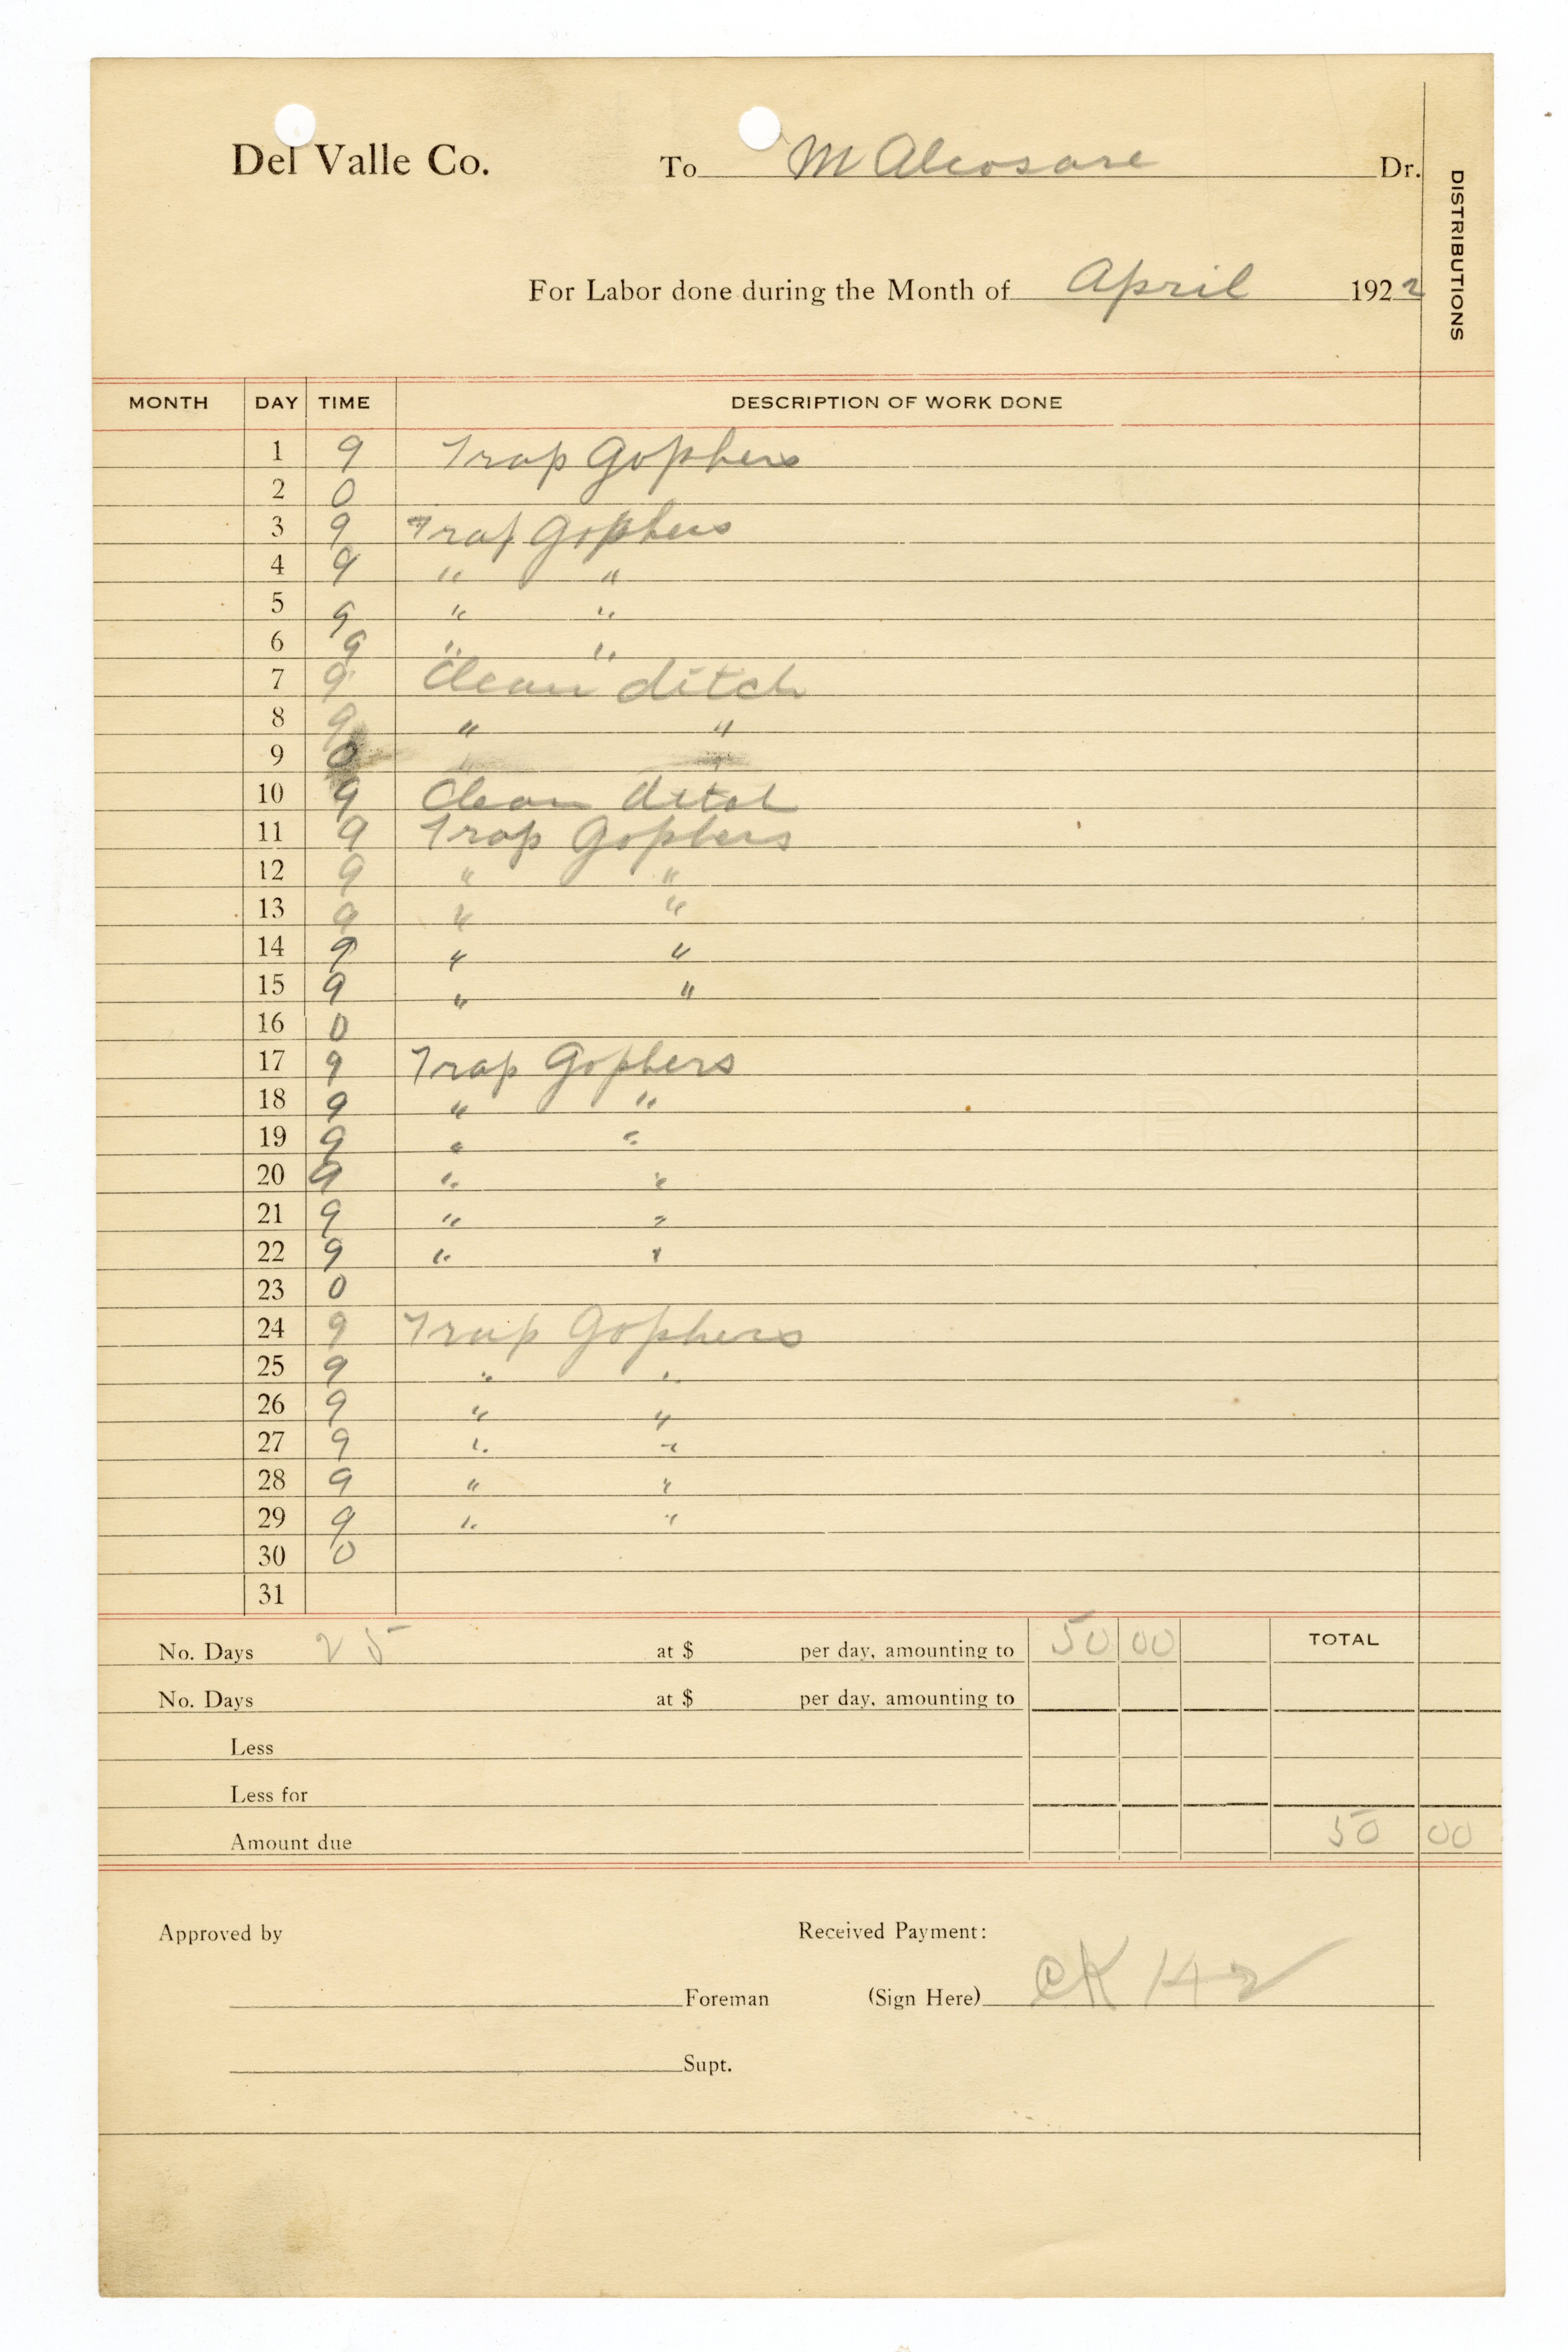 Del Valle Co. To M Alcosare Dr.
DISTRIBUTIONS
For Labor done during the Month of April 1922
MONTH DAY TIME DESCRIPTION OF WORK DONE
1 9 Trap Gophers
2 0
3 9 Trap Gophers
4 9 " "
5 9 " "
6 9 " "
7 9 Clean ditch
8 9 " "
9 0
10 9 Clean ditch
11 9 Trap Gophers
12 9 " "
13 9 " "
14 9 " "
15 9 " "
16 0
17 9 Trap Gophers
18 9 " "
19 9 " "
20 9 " "
21 9 " "
22 9 " "
23 0
24 9 Trap Gophers
25 9 " "
26 9 " "
27 9 " "
28 9 " "
29 9 " "
30 0
31
No. Days 25 at $ per day, amounting to 50 00 TOTAL
No. Days at $ per day, amounting to
Less
Less for
Amount due 50 00
Approved by Received Payment:
Foreman (Sign Here) CK 142
Supt.